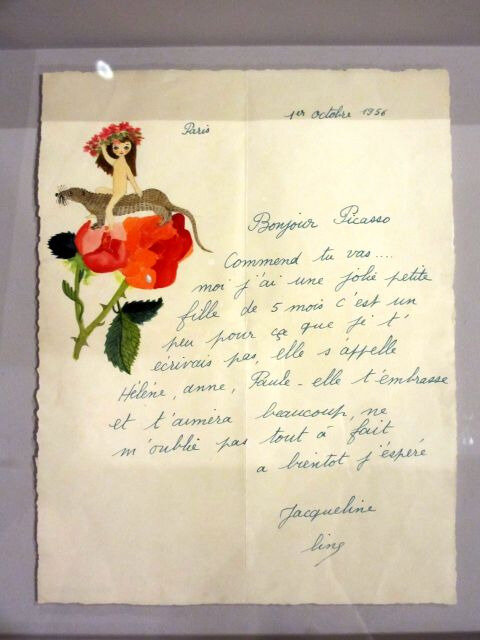 Paris
1er octobre 1956
Bonjour Picasso
Commend tu vas....
moi j'ai une jolie petite
fille de 5 mois c'est un
peu pour ça que je t'
écrivais pas, elle s'appelle
Hélène, anne, Paule - elle t'embrasse
et t'aiméra beaucoup, ne
m'oublie pas tout à fait
a bientot j'éspéré
Jacqueline
ling